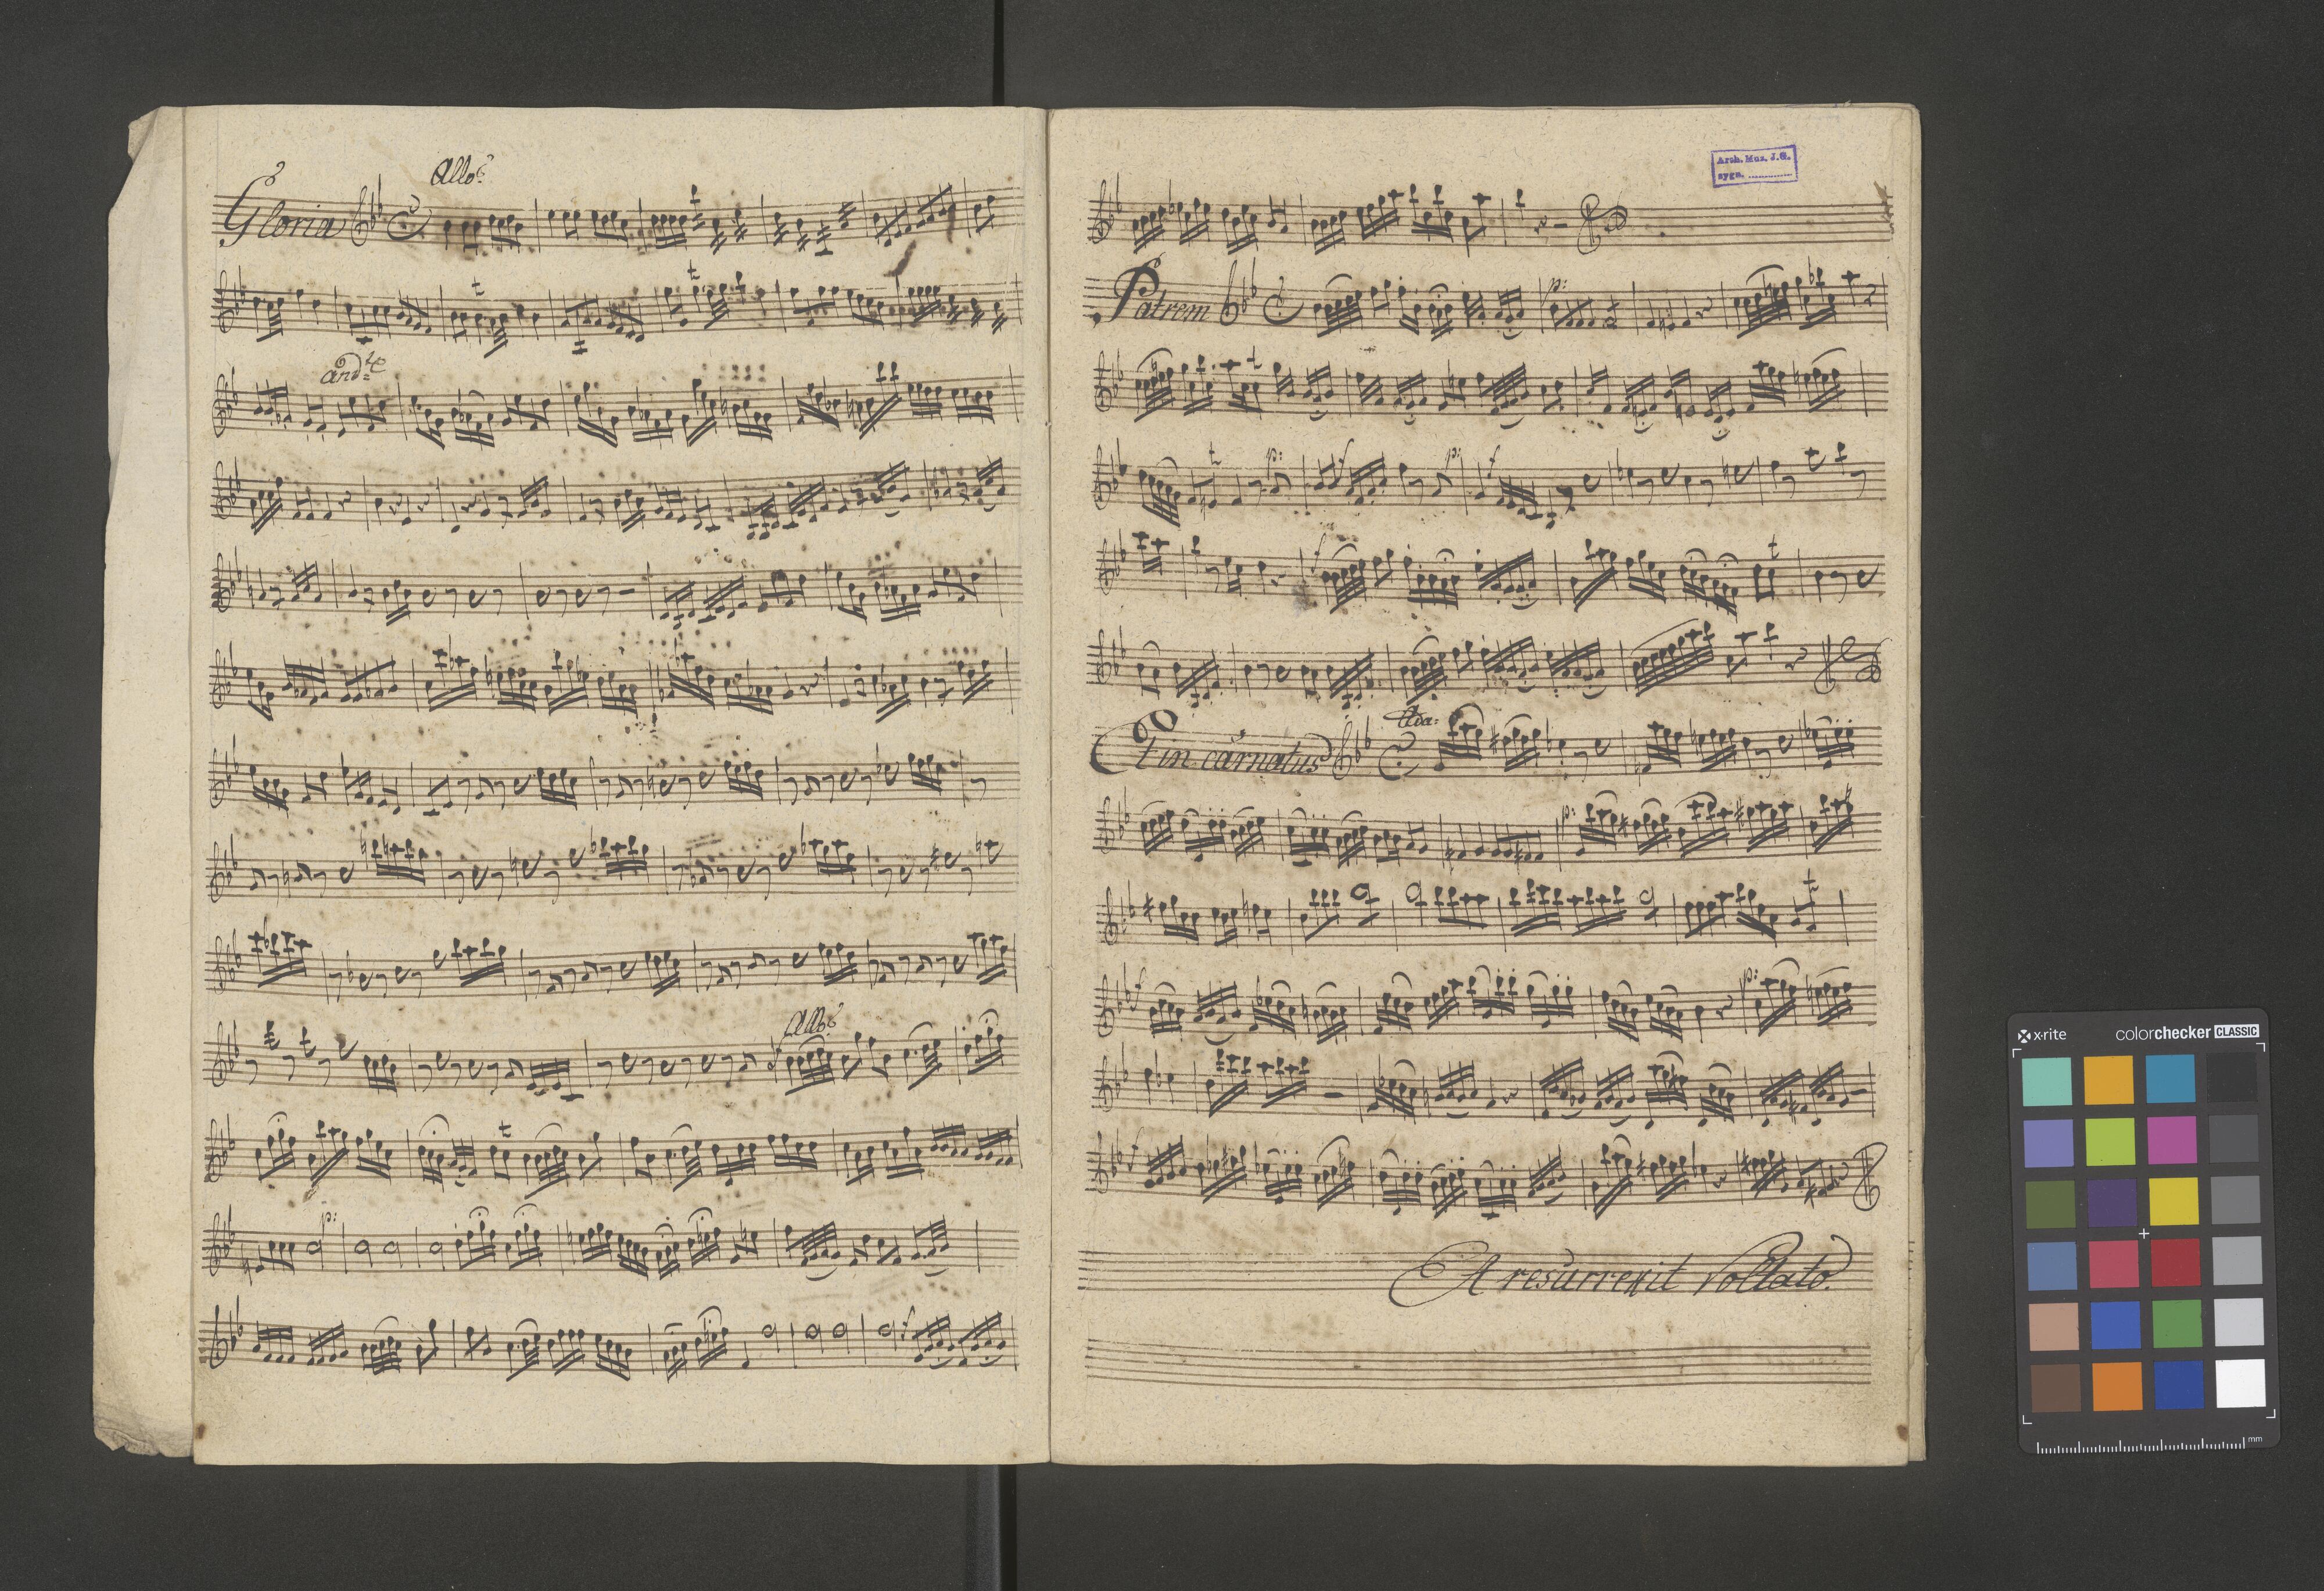 Gloria
Allo:
And:te
p:
Allo:
p:
f
Arch. Mus. J.G.
sygn. ..............
Patrem
p:
p: f p: f
f
Et in carnatus
Ada:
p:
f p:
f
Et resurrexit Voltato.
x-rite colorchecker CLASSIC
mm